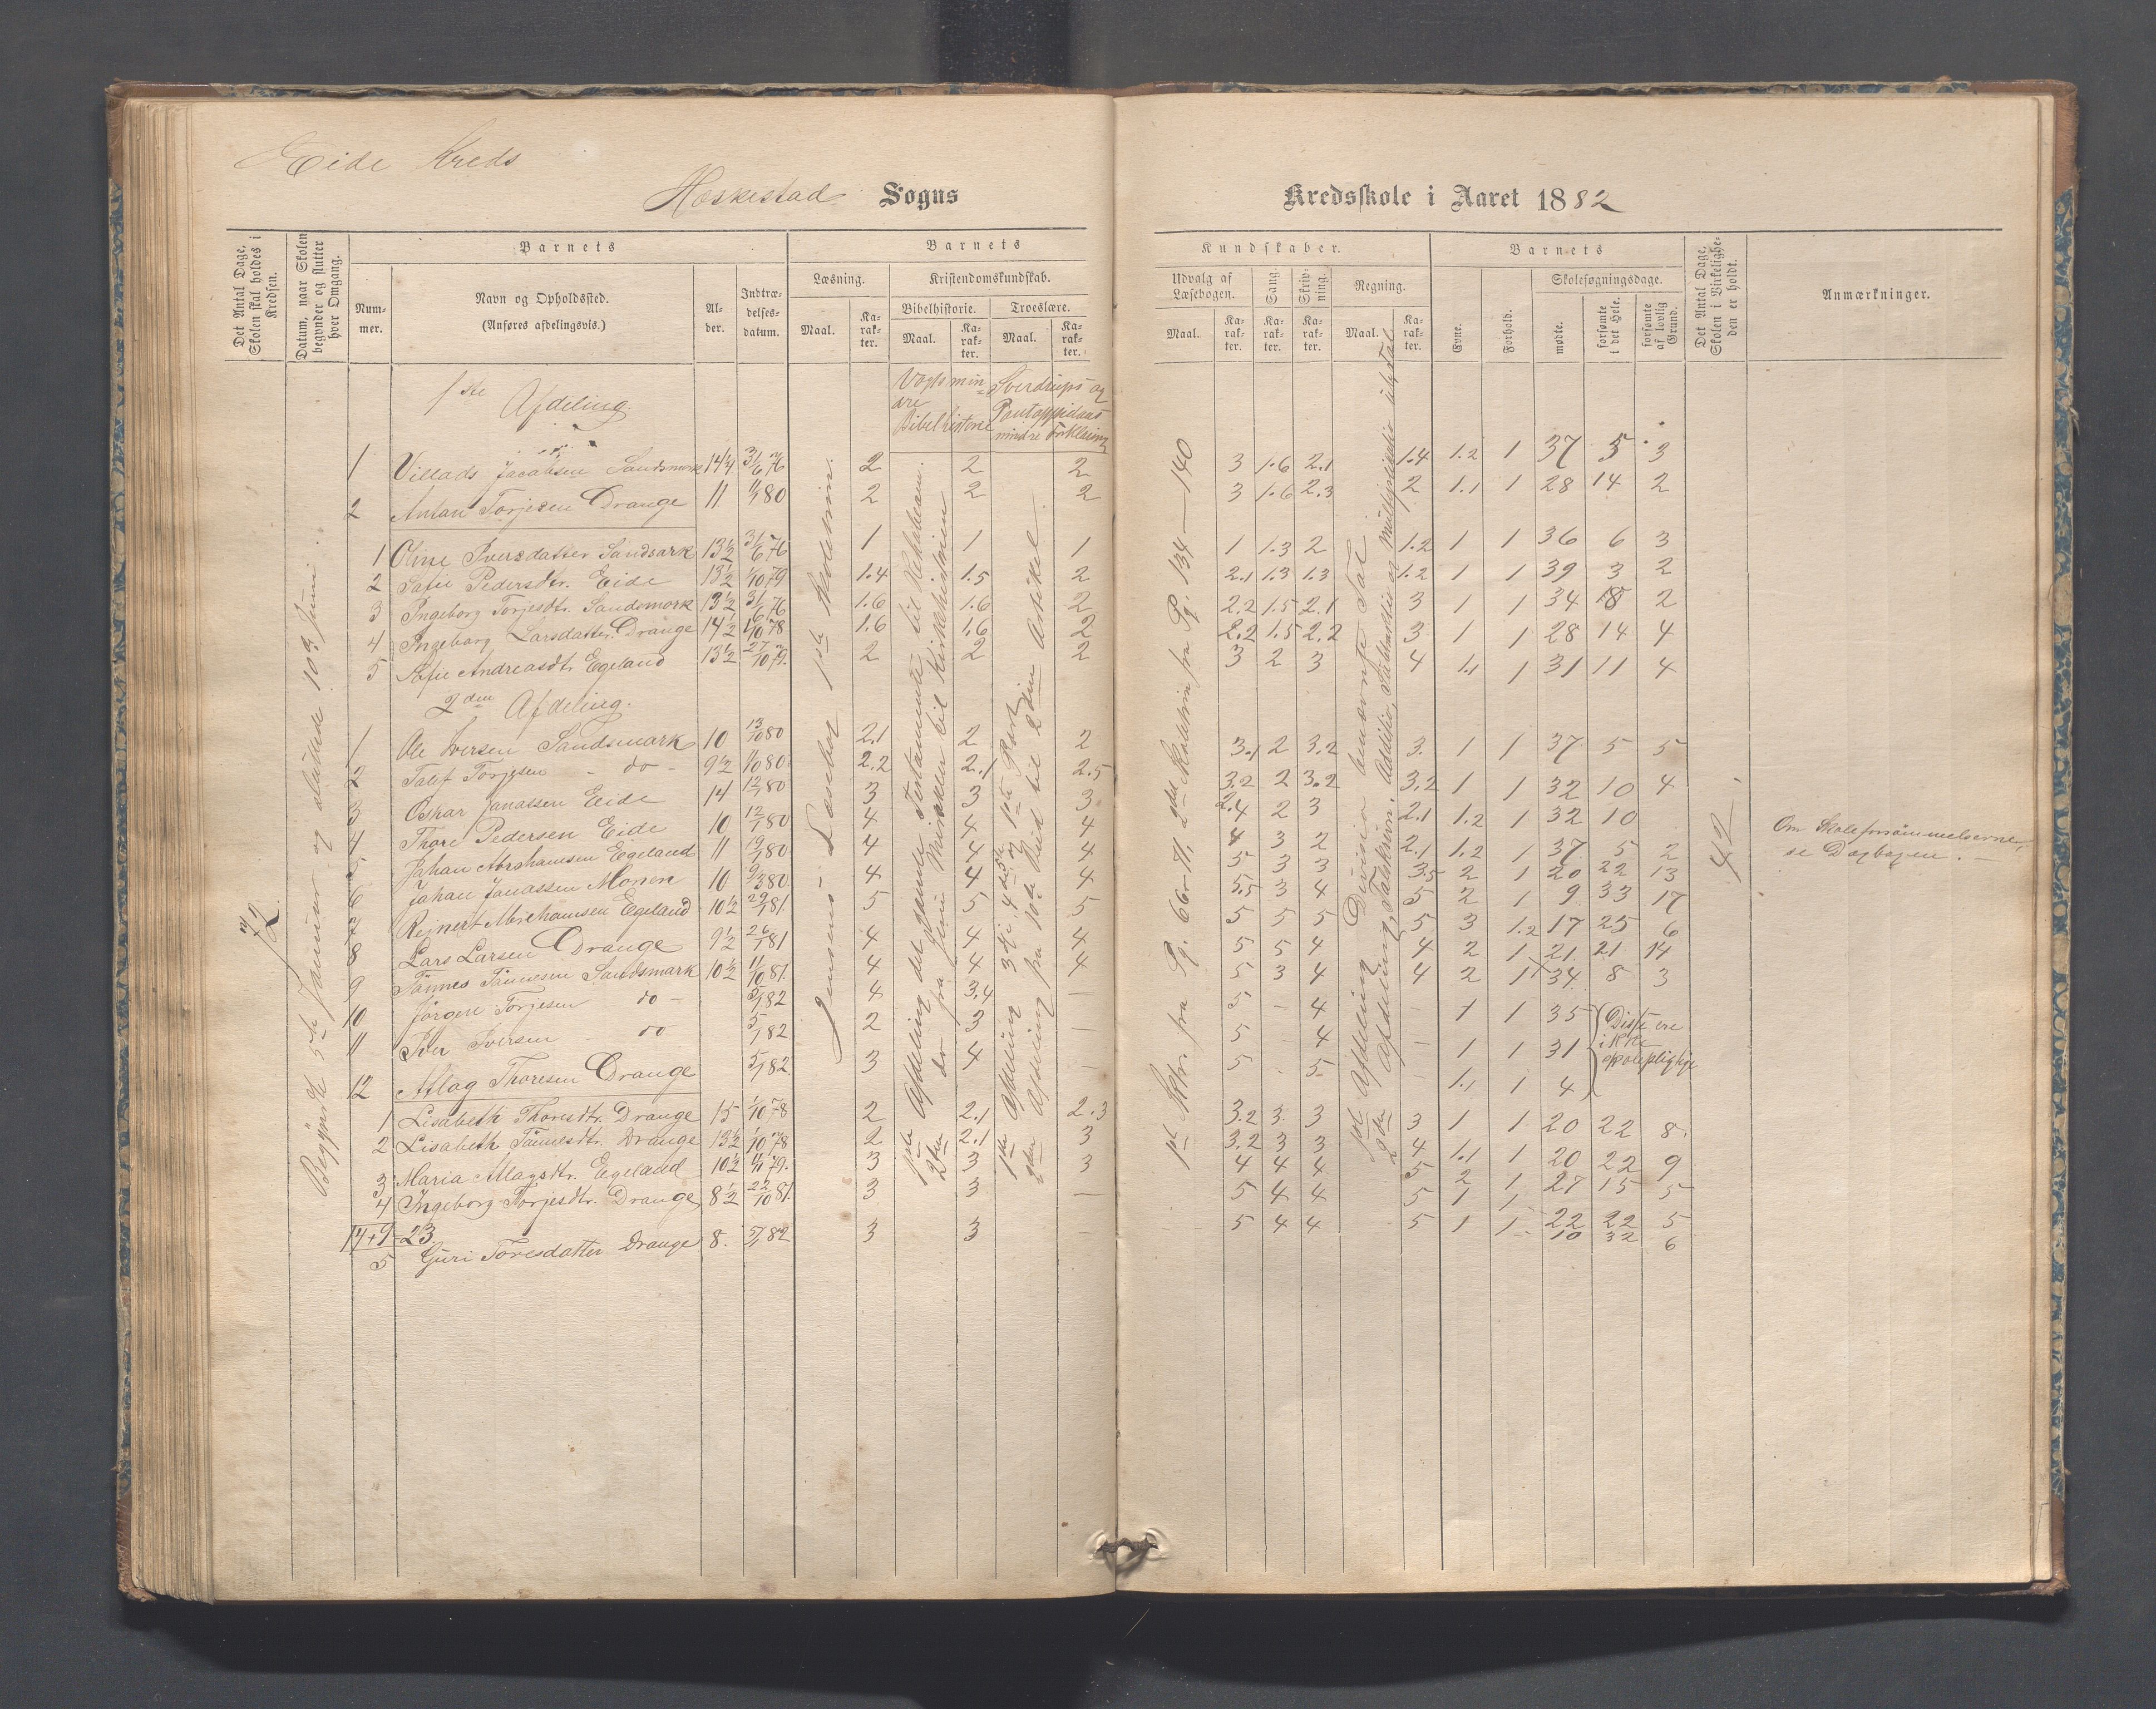 Eide Kreds
Hæskestad Sogns Kredsskole i Aaret 1882
Det Antal Dage, Skolen skal holdes i Kredsen.
Datum, naar Skolen begynder og slutter hver Omgang.
Barnets
Num-mer.
Navn og Opholdssted.
(Anføres afdelingsvis.)
Al-der.
Indtræ-delses-datum.
Barnets
Læsning.
Maal. Ka-rak-ter.
Kristendomskundskab.
Bibelhistorie. Troeslære.
Maal. Ka-rak-ter. Maal. Ka-rak-ter.
Kundskaber.
Udvalg af Læsebogen. Sang. Skriv-ning. Regning.
Maal. Ka-rak-ter. Ka-rak-ter. Ka-rak-ter. Maal. Ka-rak-ter.
Barnets
Evne. Forhold. Skolesøgningsdage.
mødte. forsømte i det Hele. forsømte af lovlig Grund.
Det Antal Dage, Skolen i Virkelighe-den er holdt.
Anmærkninger.
1ste Afdeling.
Vogts mindre Bibelhistorie
Sverdrups og Pontoppidans mindre Forklaring
1 Villads Jacobsen Sandsmork 14 1/4 31/6 76 2 2 2 3 1.6 2.1 1.4 1.2 1 37 5 3
2 Antan Torjesen Drange 11 80 2 2 2 3 1.6 2.3 2 1.1 1 28 14 2
1 Oline Iversdatter Sandsark 13 1/2 31/6 76 1 1 1 1 1.3 2 1.2 1 1 36 6 3
2 Sofie Pedersdtr. Eide 13 1/2 1/10 79 1.4 1.5 2 2.1 1.3 1.3 1.2 1 1 39 3 2
3 Ingeborg Torjesdtr. Sandsmork 13 1/2 31/6 76 1.6 1.6 2 2.2 1.5 2.1 3 1 1 34 8 2
4 Ingeborg Larsdatter Drange 14 1/2 78 1.6 1.6 2 2.2 1.5 2.2 3 1 1 28 14 4
5 Sofie Andreasdtr Egeland 13 1/2 27/10 79. 2 2 2 3 2 3 4 1.1 1 31 11 4
2den Afdeling.
1 Ole Iversen Sandsmark 10 13/10 80 2.1 2 2 3.1 2 3.2 3. 1 1 37 5 5
2 Talef Torjesen - do - 9 1/2 1/10 80 2.2 2.1 2.5 3.2 2 3.2 3.2 1 1 32 10 4
3 Oskar Janassen Eide 14 12/1 80 3 3 3 2.4 2 3 2.1 1.2 1 32 10
4 Thore Pedersen Eide 10 12/1 80 4 4 4 4 3 2 2.1 1.2 1 37 5 2
5 Johan Abrahamsen Egeland 11 80 4 4 4 5 3 3 3.5 2 1 20 22 13
6 Johan Janassen Monen 10 9/3 80 4 4 4 5.5 3 4 5 2 1 9 33 17
7 Reinert Abrehamsen Egeland 10 1/2 81 5 5 5 5 5 5 5 3 1.2 17 25 6
8 Lars Larsen Drange 9 1/2 26/1 81 4 4 4 5 5 4 4 2 1 21 21 14
9 Tønnes Tønnesen Sandsmark 10 1/2 11/10 81. 4 4 4 5 3 4 4 2 1 34 8 3
10 Jørgen Torjesen do - 5/1 82 4 3.4 — 5 - 4 - 1 1 35
11 Iver Iversen - do 5/1 82 2 3 — 5 - 4 - 1 1 31
12 Atlag Thoresen Drange 5/1 82 3 4 — 5 - 5 - 1.1 1 4
Disse ere ikke skolepligtige
1 Lisabeth Thoresdtr. Drange 15 1/10 78 2 2.1 2.3 3.2 3. 3 3 1 1 20 22 8
2 Lisabeth Tønnesdtr. Drange 13 1/2 1/10 78 2 2.1 3 3.2 3 3 4 1.1 1 20 22 9
3 Maria Atlagsdtr. Egeland 10 1/2 79. 3 3 3 4 4 4 5 2 1 27 15 5
4 Ingeborg Torjesdtr. Drange 8 1/2 22/10 81. 3 3 — 5 4 4 5 1 1 22 22 5
14+9=23
5 Guri Toresdatter Drange 8. 5/1 82 3 3 — 5 4 4 5 1 1 10 32 6
72
Begyndt 5te Januar og sluttede 10de Juni.
Jensens Læsebog 1ste Skoletrin.
1ste Afdeling det gamle Testamente til Rehabeam.
2den do fra Jesu Mirakler til Kirkehistorien
1ste Afdeling 3die, 4de, 5te og 1ste Part
2den Afdeling fra 10de Bud til 2den Artikel.
1ste Sktr. fra Pg. 66-71, 2det Skoletrin fra Pg. 134—140
1ste Afdeling Division benævnte Tal
2den Afdeling, Talskrivn. Addition, Subtraktion og Multiplikation ubn. Tal
42
Om Skoleforsømmelserne, se Dagbogen.